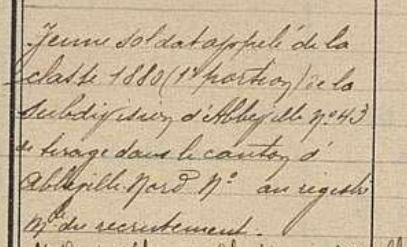 Jeune soldat appelé de la
classe 1880 (1e portion) de la
subdivision d'Abbeville No 43
de tirage dans le canton d'
Abbeville Nord No au registre
Mle du recrutement.